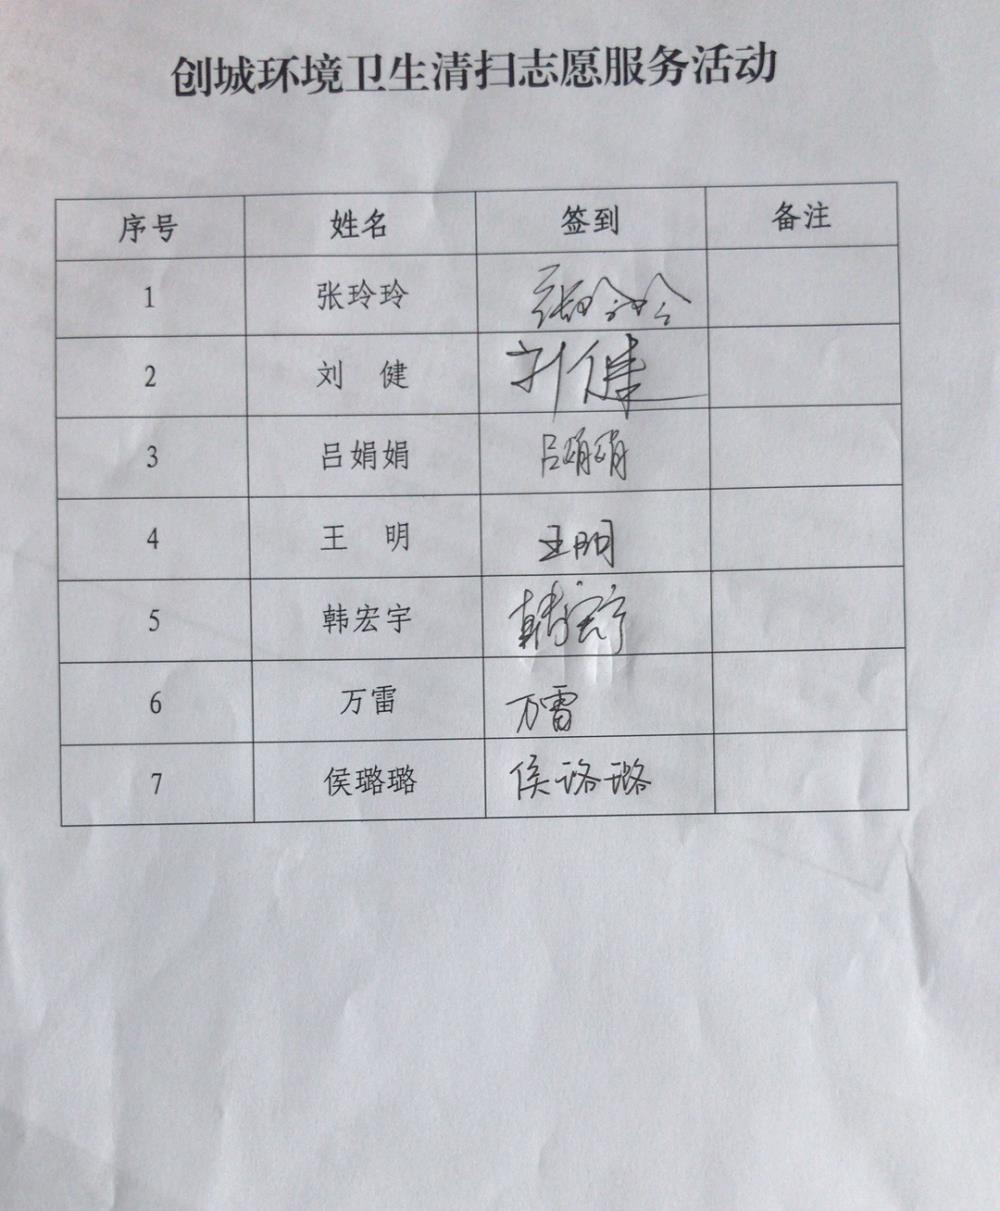 创城环境卫生清扫志愿服务活动
序号 姓名 签到 备注
1 张玲玲 张玲玲
2 刘 健 刘健
3 吕娟娟 吕娟娟
4 王 明 王明
5 韩宏宇 韩宏宇
6 万雷 万雷
7 侯璐璐 侯璐璐